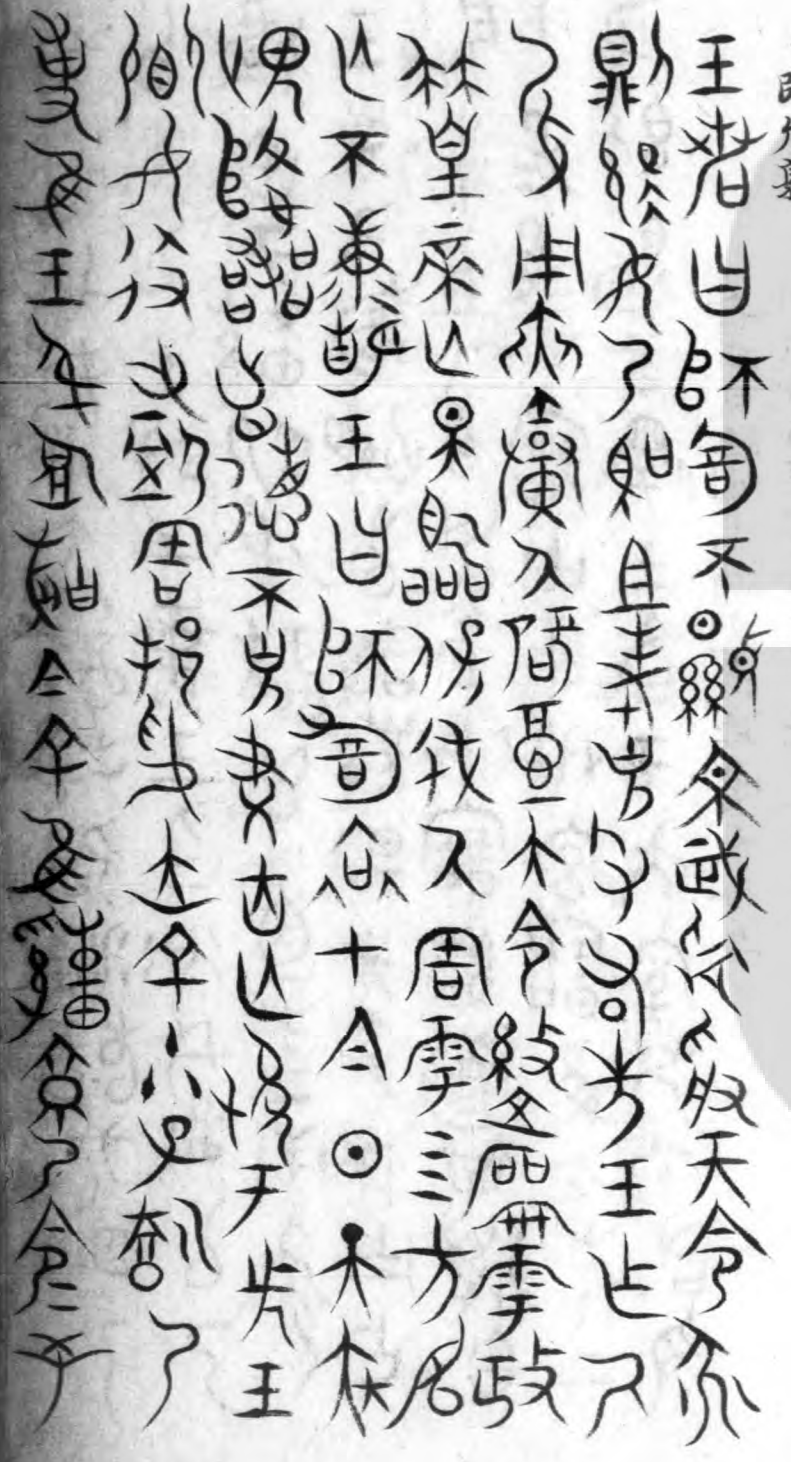 王若曰師訇不顯文武受天令亦
則女乃聖且考克左右先王乍厥
用夾召厥辟奠大令盩龢雩政
皇帝亡斁臨保我又周雩四方民
亡不康靜王曰師訇哀才今日天疾
畏降喪德不克古亡承于先王
鄉女彶屯卹周邦妥立余小子乃
事隹王身厚今余隹乃令令女